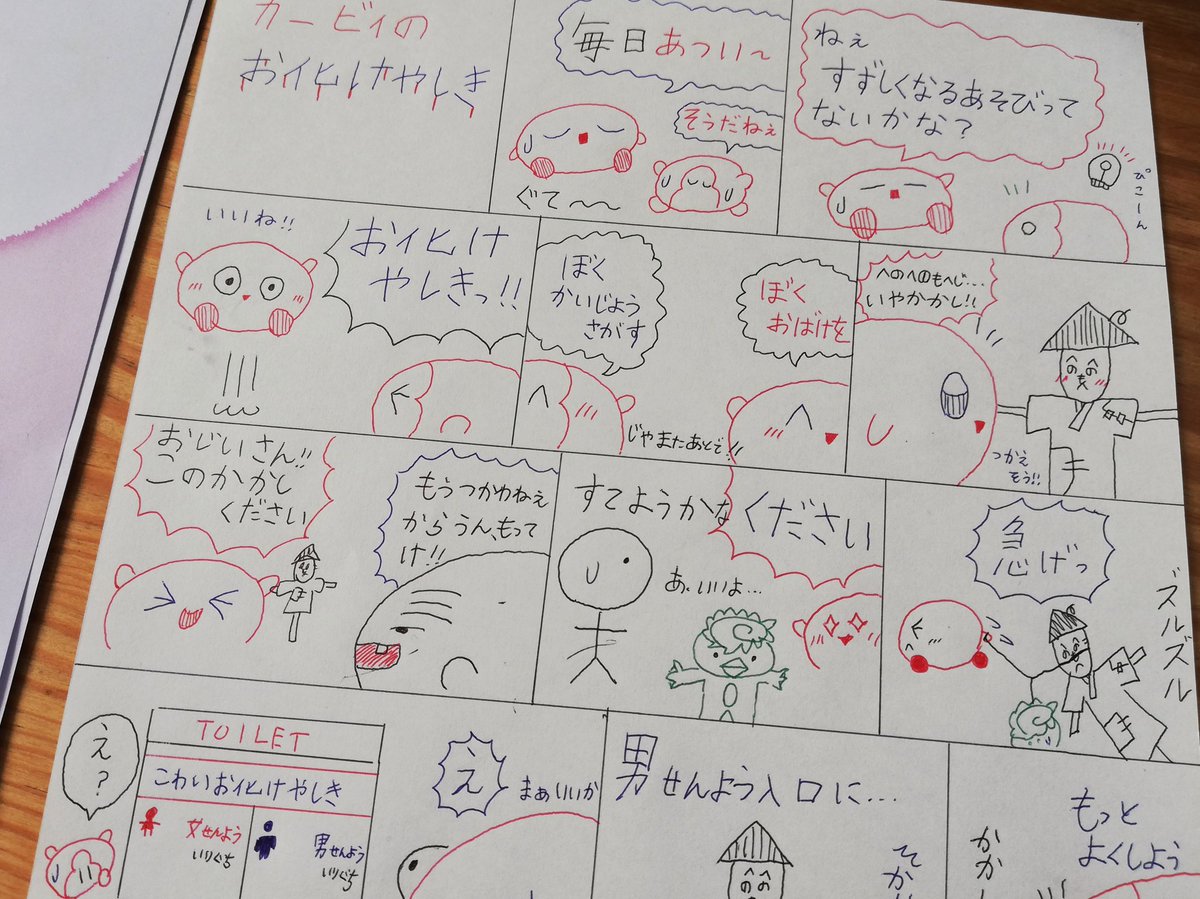 カービィの
お化けやしき
毎日あつい～
そうだねぇ
ぐて～～
ねぇ
すずしくなるあそびって
ないかな?
ぴこーん
いいね!!
お化け
やしきっ!!
ぼく
かいじよう
さがす
ぼく
おばけを
じゃまたあとで!!
へのへのもへじ...
いやかかし!!
つかえ
そう!!
おじいさん!!
このかかし
ください
もうつかわねぇ
からうん、もって
け!!
すてようかな
ください
あ、いいよ...
急げっ
ズルズル
え?
TOILET
こわいお化けやしき
女せんよう
いりぐち
男せんよう
いりぐち
え
まぁいいか
男せんよう入口に...
もっと
よくしよう